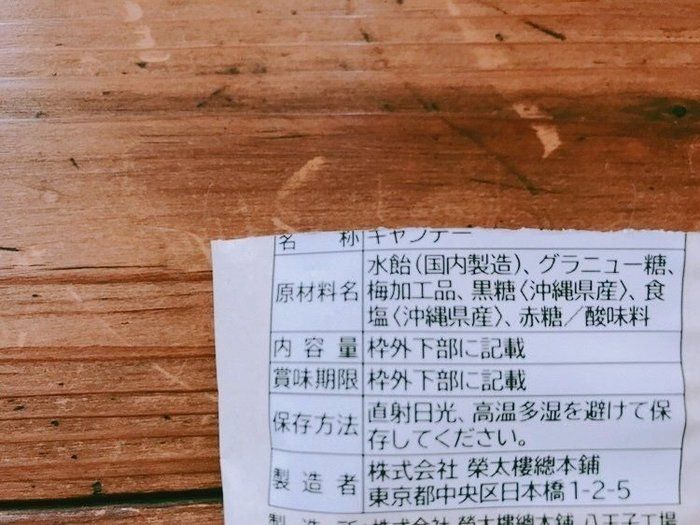 名 称 キャンデー
原材料名 水飴(国内製造)、グラニュー糖、
梅加工品、黒糖〈沖縄県産〉、食
塩〈沖縄県産〉、赤糖/酸味料
内容量 枠外下部に記載
賞味期限 枠外下部に記載
保存方法 直射日光、高温多湿を避けて保
存してください。
製造者 株式会社 榮太樓總本鋪
東京都中央区日本橋1-2-5
製造所 株式会社 榮太樓總本鋪 八王子工場